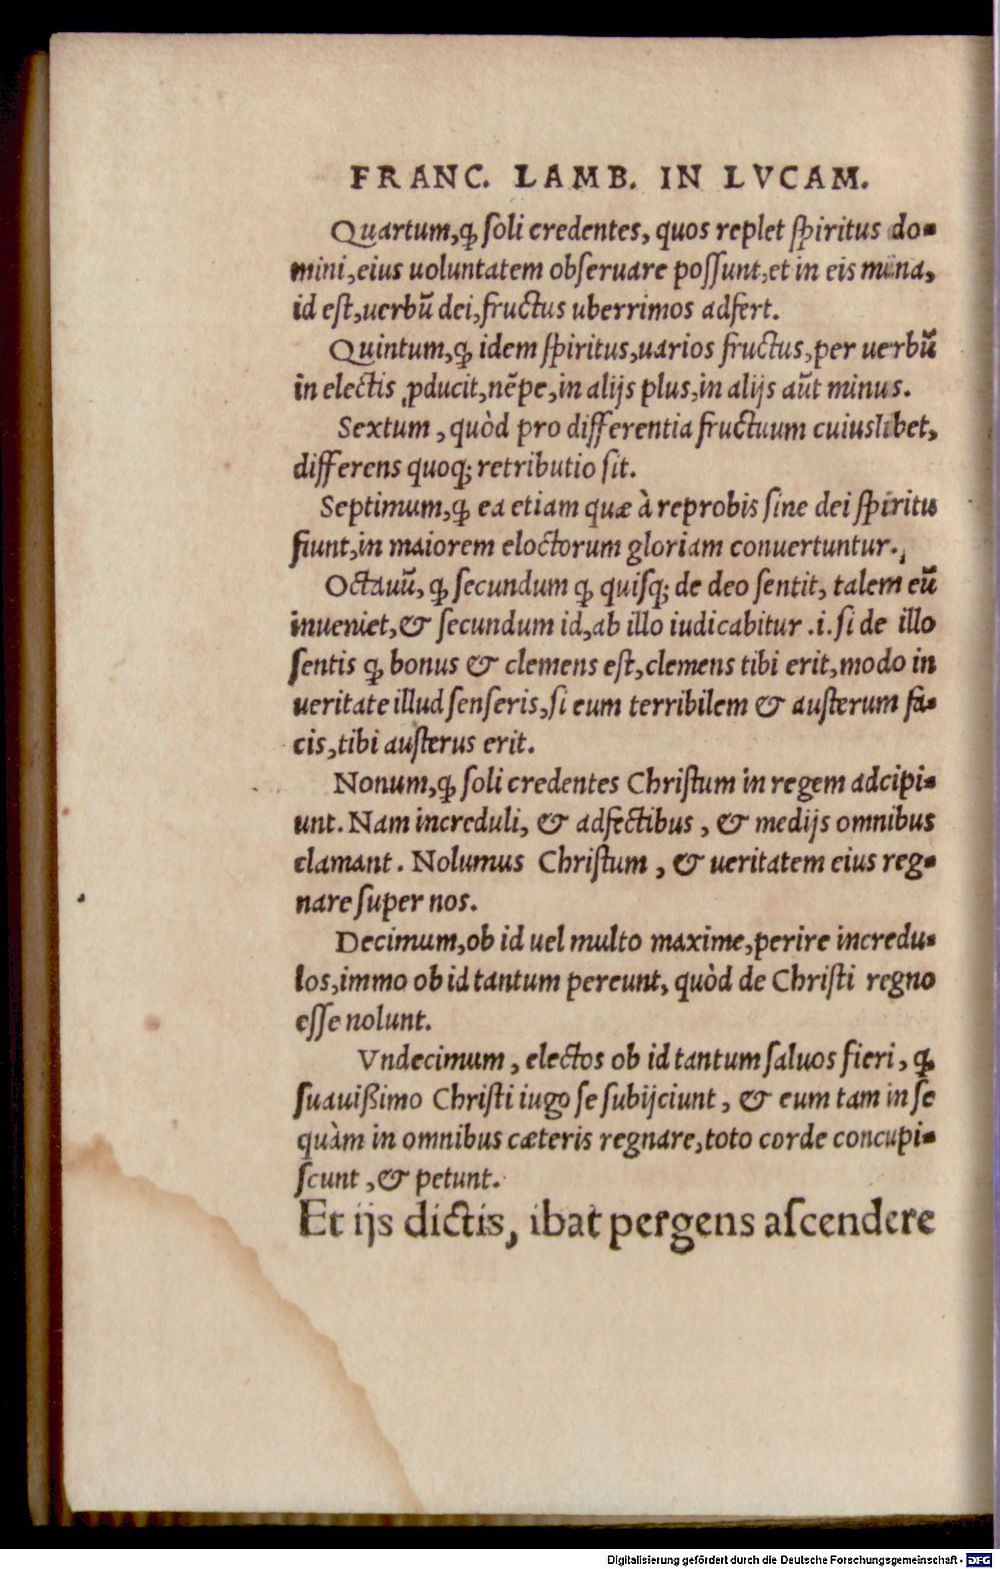 FRANC. LAMB. IN LVCAM.
Quartum,ꝙ ſoli credentes, quos replet ſpiritus do-
mini,eius uoluntatem obſeruare poſſunt,et in eis mina,
id eſt,uerbũ dei,fructus uberrimos adfert.
Quintum,ꝙ idem ſpiritus,uarios fructus,per uerbũ
in electis ꝓducit,nẽpe,in alijs plus,in alijs aũt minus.
Sextum, quòd pro differentia fructuum cuiuslibet,
differens quoq; retributio ſit.
Septimum,ꝙ ea etiam quæ à reprobis ſine dei ſpiritu
fiunt,in maiorem eloctorum gloriam conuertuntur.
Octauũ, ꝙ ſecundum ꝙ quiſq; de deo ſentit, talem eũ
inueniet,& ſecundum id,ab illo iudicabitur .i. ſi de illo
ſentis ꝙ bonus & clemens eſt,clemens tibi erit,modo in
ueritate illud ſenſeris,ſi eum terribilem & auſterum fa-
cis,tibi auſterus erit.
Nonum,ꝙ ſoli credentes Chriſtum in regem adcipi-
unt. Nam increduli, & adfectibus, & medijs omnibus
clamant. Nolumus Chriſtum, & ueritatem eius reg-
nare ſuper nos.
Decimum,ob id uel multo maxime,perire incredu-
los,immo ob id tantum pereunt, quòd de Chriſti regno
eſſe nolunt.
Vndecimum, electos ob id tantum ſaluos fieri, ꝙ
ſuauißimo Chriſti iugo ſe ſubijciunt, & eum tam in ſe
quàm in omnibus cæteris regnare,toto corde concupi-
ſcunt,& petunt.
Et ijs dictis, ibat pergens aſcendere
Digitalisierung gefördert durch die Deutsche Forschungsgemeinschaft - DFG